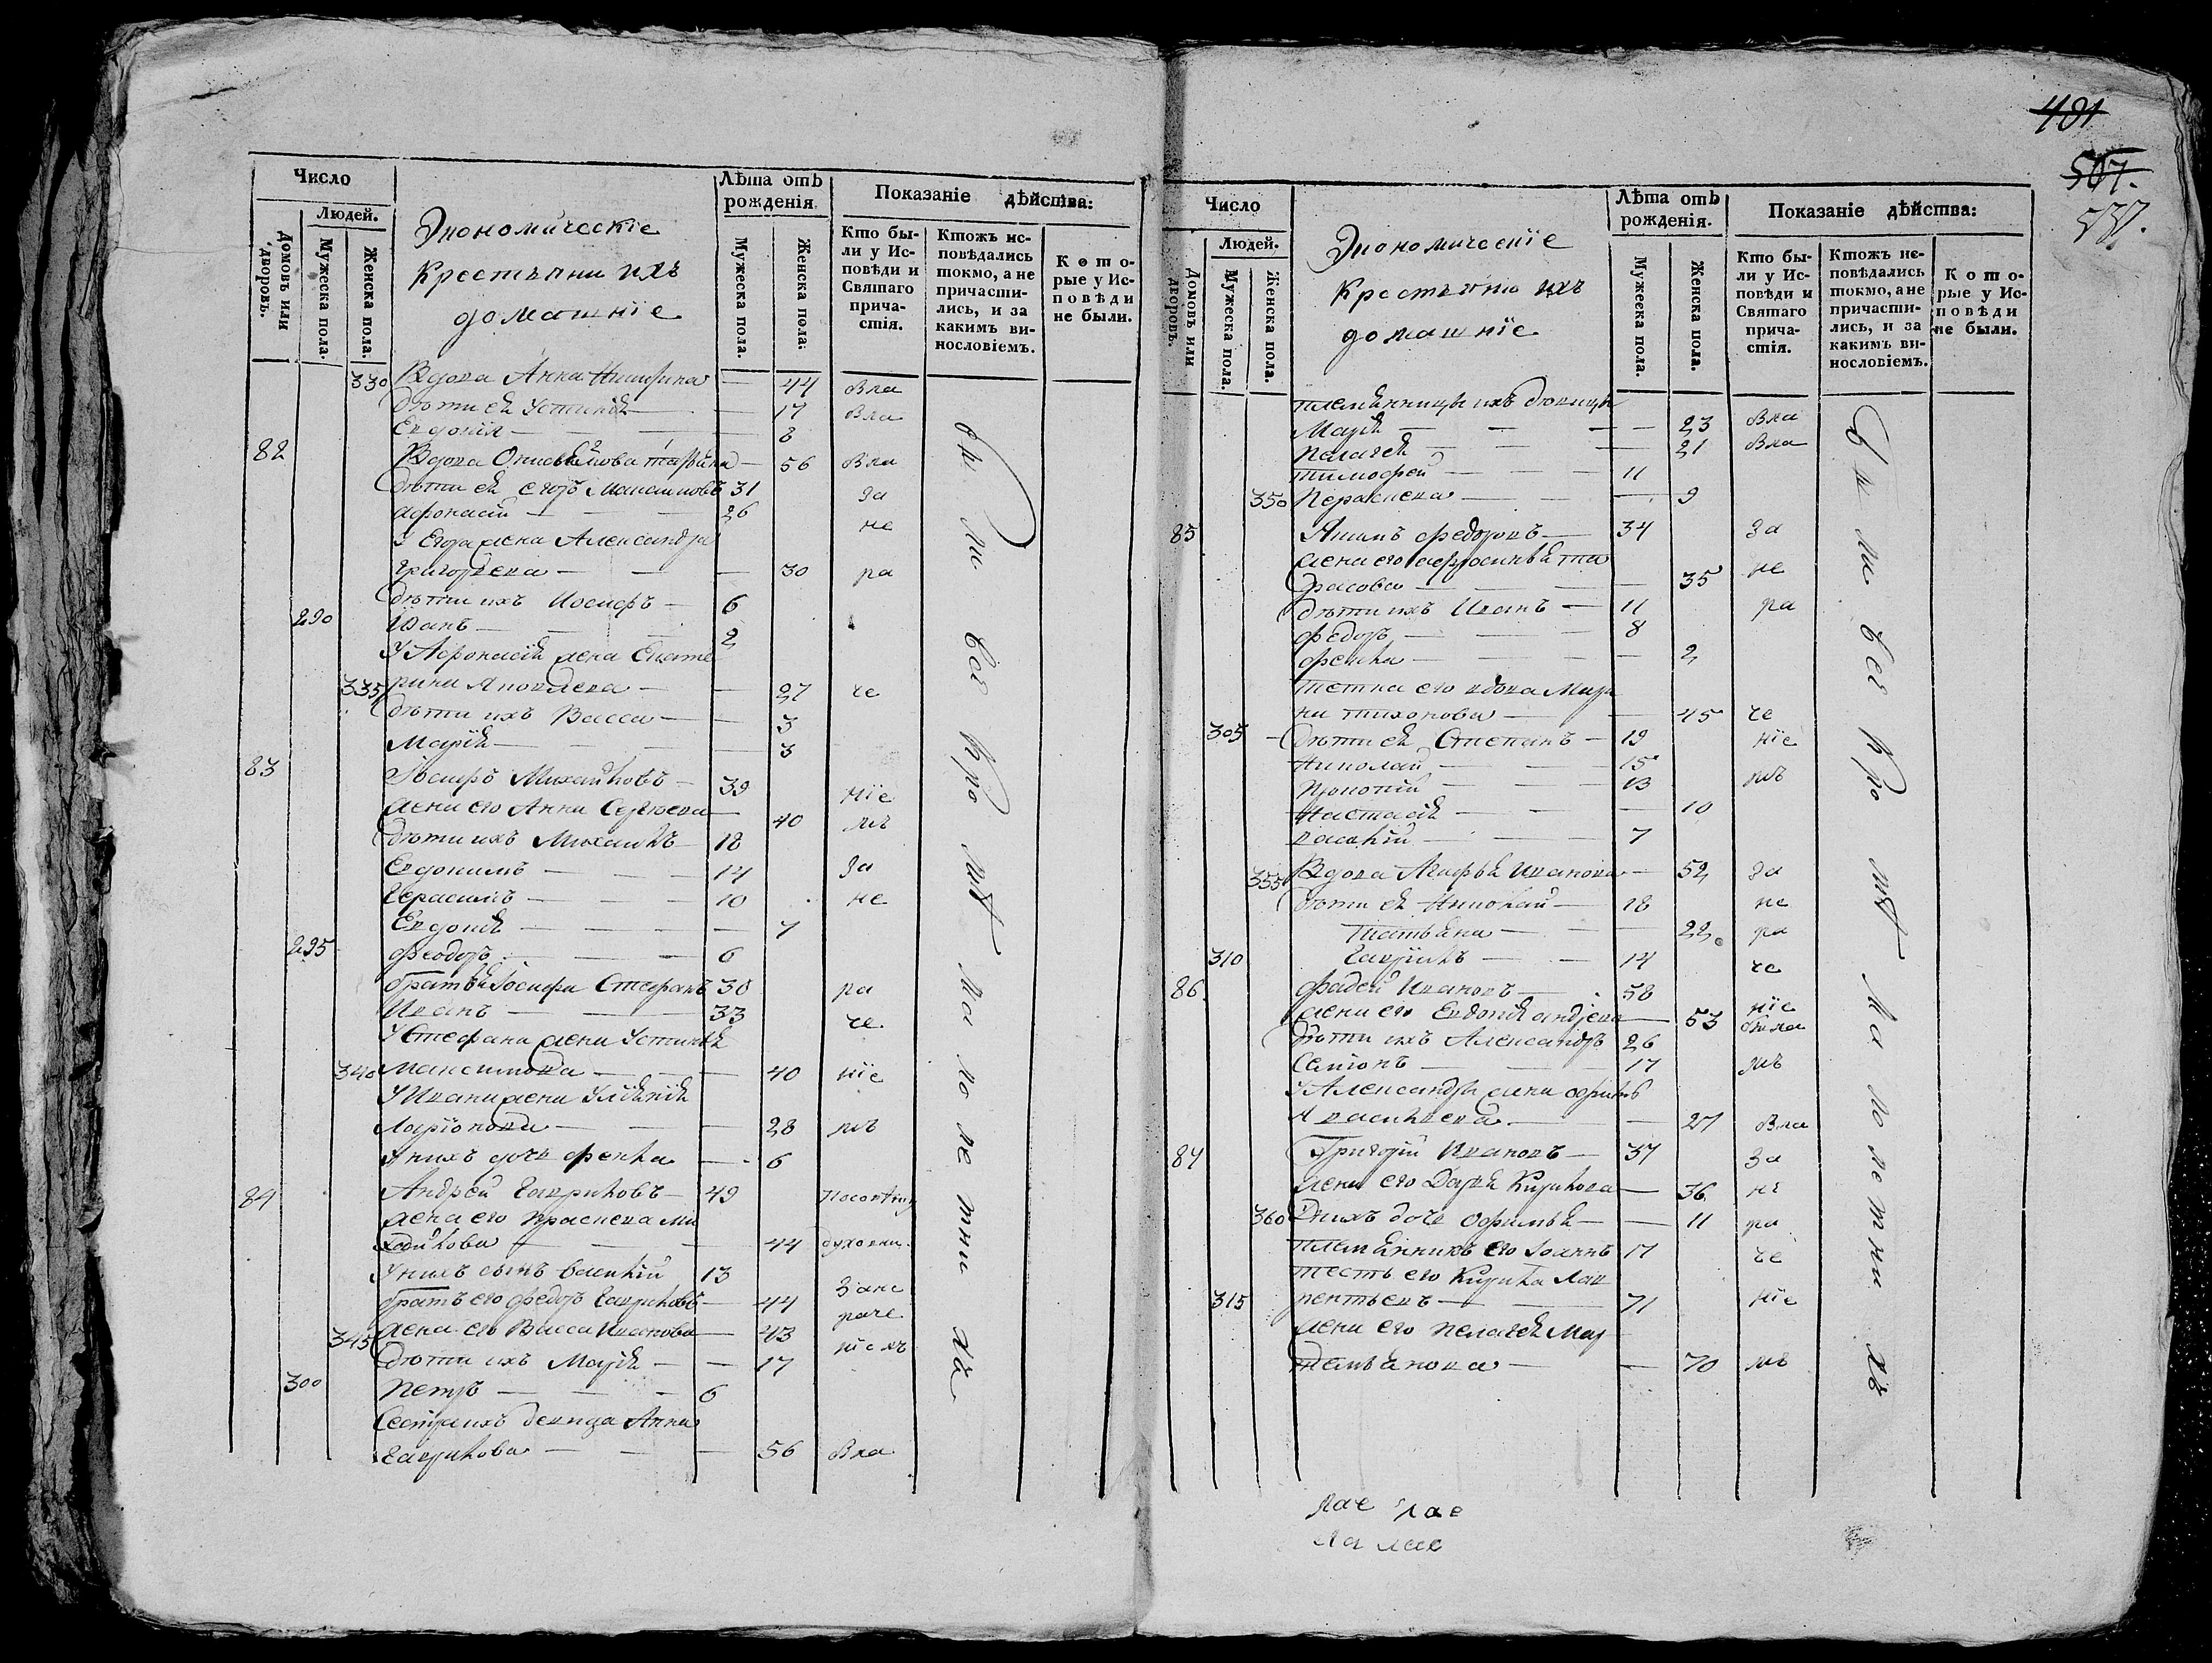 Число
Людей.
Домовъ или дворовъ.
Мужеска пола.
Женска пола.
Экономическіе
Крестьяни ихъ
домашніе
Лѣта отъ рожденія.
Мужеска пола.
Женска пола.
Показаніе дѣйства:
Кто были у Исповѣди и Святаго причастія.
Ктожъ исповѣдались токмо, а не причастились, и за какимъ винословіемъ.
Которые у Исповѣди не были.
330 Вдова Анна — 44 Вла
дѣти ея Устинія — 17 Вла
Евдокія — 8
82 Вдова — 56 Вла
дѣти ея Егоръ Максимовъ 31 за
Афонасій — 26 не
У Егора жена Александра
Григорьева — 30 ра
дѣти ихъ Иосифъ — 6
290 Иванъ — 2
У Афонасія жена Екате
335 рина Яковлева — 27 че
дѣти ихъ Васса — 3
Марія — 3
83 Іосифъ Михайловъ — 39 ніе
жена его Анна Сергѣева — 40 мъ
дѣти ихъ Михаилъ 18
Евдокимъ — 14 за
Герасимъ — 10 не
Евдокія — 7
295 Феодоръ — 6
братья Іосифа Стефанъ 38 ра
Иванъ — 33 че
У Стефана жена Устинья
340 Максимова — 40 ніе
У Ивана жена Улѣянія
Ларіонова — 28 мъ
У нихъ дочь Фекла — 6
84 Андрей Гавриловъ — 49
жена его Праскева Ми
хайлова — 44
У нихъ сынъ Василій 13
братъ его Федоръ Гавриловъ — 44 рače
345 жена его Васса Иванова — 43
дѣти ихъ Марія — 17
300 Петръ — 6
Сестра ихъ девица Анна
Гаврилова — 56 Вла
Вы ли всѣ кро мѣ ма ло ле тни хъ
401
507.
537.
Число
Людей.
Домовъ или дворовъ.
Мужеска пола.
Женска пола.
Экономическіе
Крестьяни ихъ
домашніе
Лѣта отъ рожденія.
Мужеска пола.
Женска пола.
Показаніе дѣйства:
Кто были у Исповѣди и Святаго причастія.
Ктожъ исповѣдались токмо, а не причастились, и за какимъ винословіемъ.
Которые у Исповѣди не были.
племянницы ихъ дѣвицы
Марія — 23 Вла
Пелагея — 21 Вла
Тимофей — 11
350 Пераскева — 9
85 Якимъ Федоровъ — 34 за
жена его Афросинья Та
расова — 35 не
дѣти ихъ Иванъ — 11 ра
Федоръ — 8
Фекла — 2
тетка его вдова Мари
на Тихонова — 45 че
305 дѣти ея Степанъ — 19 ніе
Николай — 15 мъ
Прокопій — 13
Настасія — 10
Василій — 7
355 Вдова Агафья Иванова — 52 за
дѣти ея Николай — 18 не
Татьяна — 22 ра
310 Гавріилъ — 14 че
86 Фадей Ивановъ — 58 ніе
жена его Евдокія — 53
дѣти ихъ Александръ 26
Семіонъ — 17 мъ
У Александра жена
Василиева — 27 Вла
84 Григорій Ивановъ — 37 за
жена его Дарья Кирилова — 36 не
360 У нихъ дочь Офимья — 11 ра
племянникъ его Іоаннъ 17 че
тесть его Кирила Лав
315 рентьевъ — 71 ніе
жена его Пелагея Мар
— 70 мъ
Вы ли всѣ кро мѣ ма ло ле тни хъ